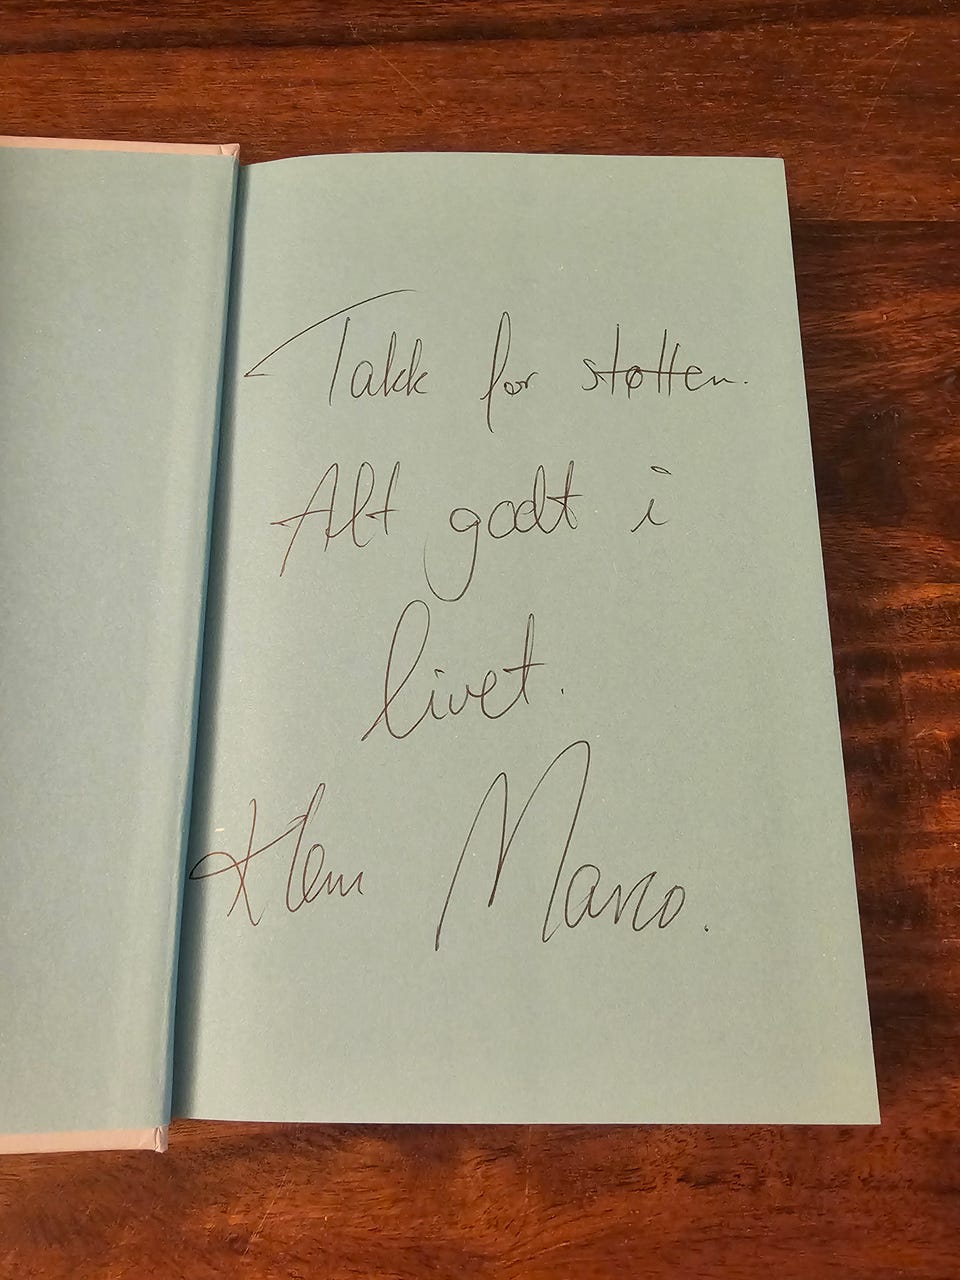 Takk for støtten.
Alt godt i
livet.
Klem Marco.